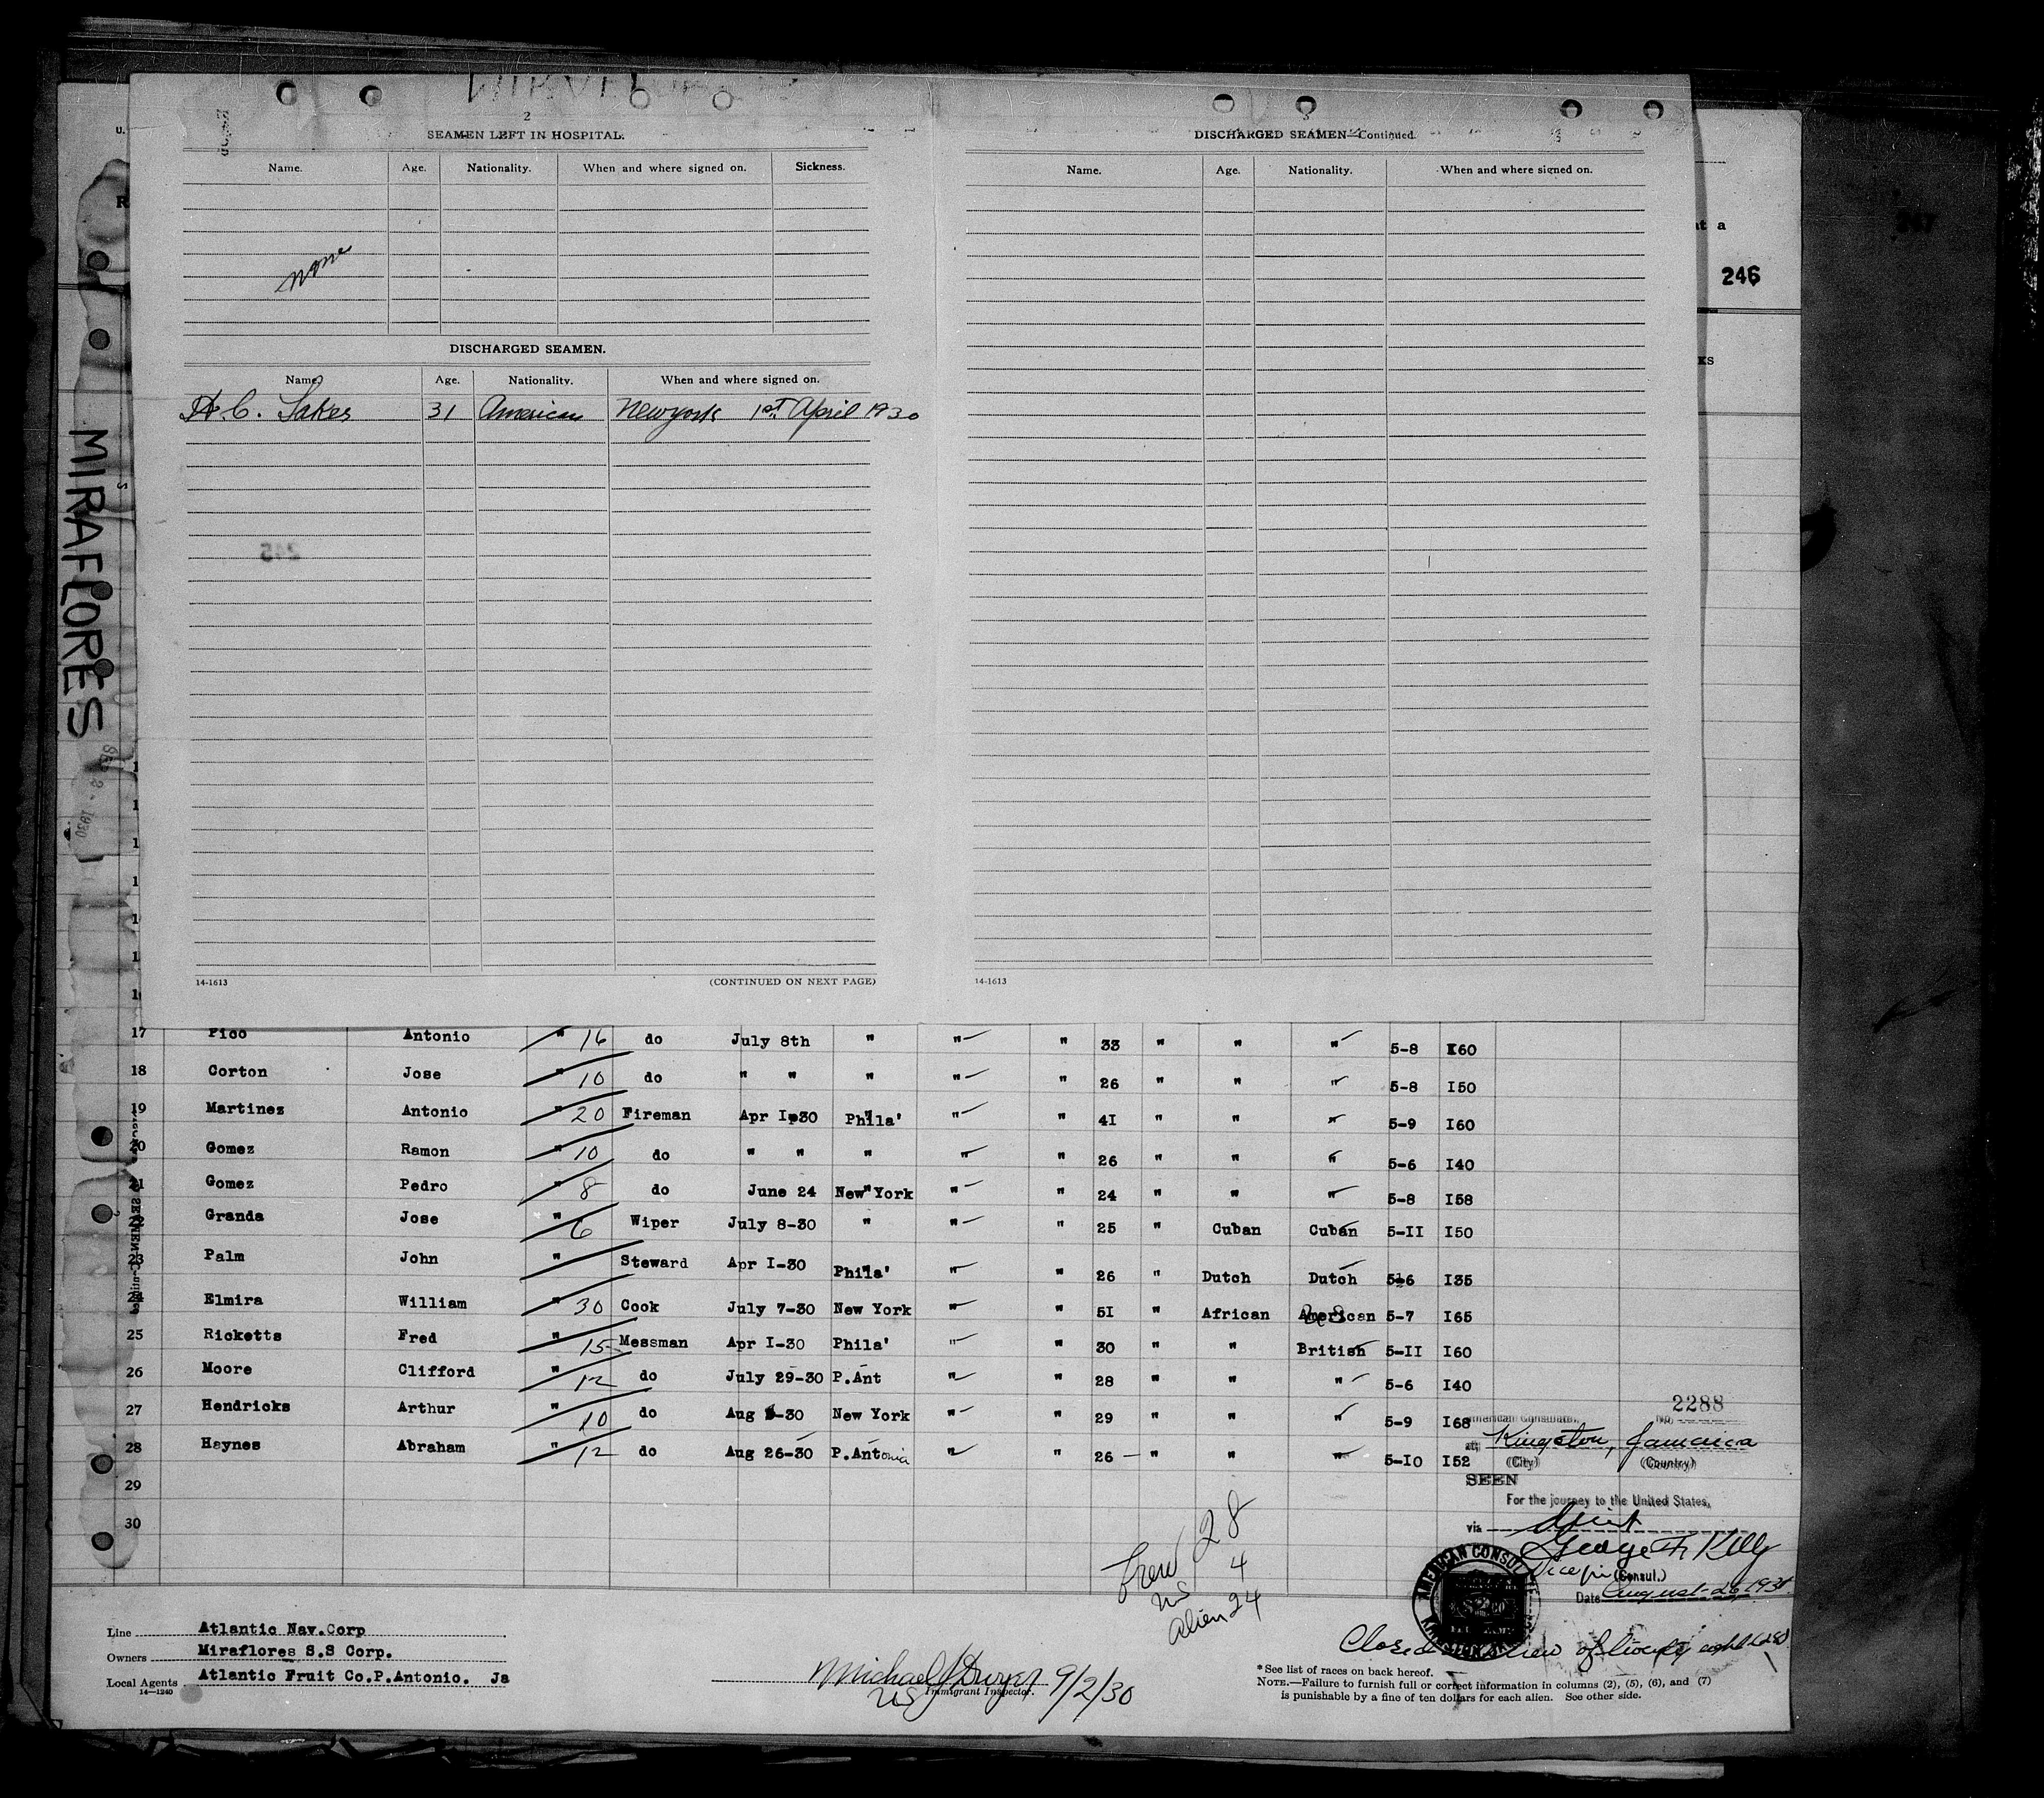 2
SEAMEN LEFT IN HOSPITAL.
Name. Age. Nationality. When and where signed on. Sickness.
none
DISCHARGED SEAMEN.
Name. Age. Nationality. When and where signed on.
31 American New york 1st April 1930
14-1613 (CONTINUED ON NEXT PAGE)
DISCHARGED SEAMEN—Continued.
Name. Age. Nationality. When and where signed on.
14-1613
246
MIRAFLORES
SEP 2 - 1930
17 Pico Antonio " 16 do July 8th " " " 33 " " " 5-8 I60
18 Corton Jose " 10 do " " " " " 26 " " " 5-8 I50
19 Martinez Antonio " 20 Fireman Apr I-30 Phila' " " 4I " " " 5-9 I60
20 Gomez Ramon " 10 do " " " " " 26 " " " 5-6 I40
21 Gomez Pedro " 8 do June 24 New York " " 24 " " " 5-8 I58
22 Granda Jose " 6 Wiper July 8-30 " " " 25 " Cuban Cuban 5-II I50
23 Palm John " Steward Apr I-30 Phila' " " 26 " Dutch Dutch 5-6 I35
24 Elmira William " 30 Cook July 7-30 New York " " 5I " African American 5-7 I65
25 Ricketts Fred " 15 Messman Apr I-30 Phila' " " 30 " " British 5-II I60
26 Moore Clifford " 12 do July 29-30 P.Ant " " 28 " " " 5-6 I40
27 Hendricks Arthur " 10 do Aug -30 New York " " 29 " " " 5-9 I68
28 Haynes Abraham " 12 do Aug 26-30 P.Antonia " " 26 " " " 5-I0 I52
29
30
2288
American Consulate, No.
at Kingston, Jamaica
(City) (Country)
SEEN
For the journey to the United States,
via
George Kelly
(Consul.)
Date August 26 1930
AMERICAN CONSUL
Crew 28
US 4
Alien 24
Line Atlantic Nav.Corp
Owners Miraflores S.S Corp.
Local Agents Atlantic Fruit Co.P.Antonio. Ja
14-1240
Michael J Dwyer 9/2/30
US Immigrant Inspector.
Closed crew of twenty eight (28)
*See list of races on back hereof.
NOTE.—Failure to furnish full or correct information in columns (2), (5), (6), and (7)
is punishable by a fine of ten dollars for each alien. See other side.